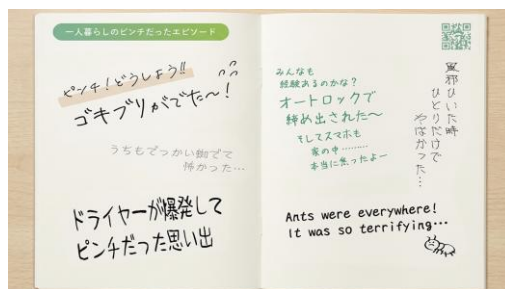 一人暮らしのピンチだったエピソード
ピンチ!どうしよう!!
ゴキブリがでた〜!
うちもでっかい蜘でて
怖かった…
ドライヤーが爆発して
ピンチだった思い出
みんなも
経験あるのかな?
オートロックで
締め出された〜
そしてスマホも
家の中………
本当に焦ったよー
風邪ひいた時
ひとりだけで
やばかった…
Ants were everywhere!
It was so terrifying…